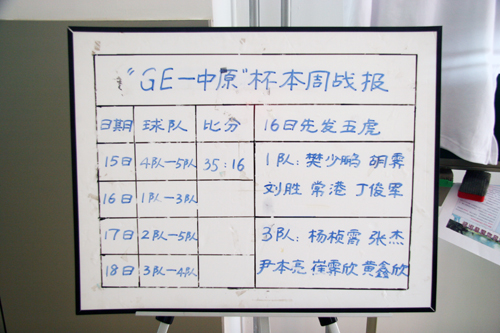 "GE一中原"杯本周战报
日期 球队 比分 16日先发五虎
15日 4队一5队 35:16 1队: 樊少鹏 胡霁
16日 1队一3队 刘胜 常港 丁俊军
17日 2队一5队 3队: 杨桢霄 张杰
18日 3队一4队 尹本亮 崔霖欣 黄鑫欣